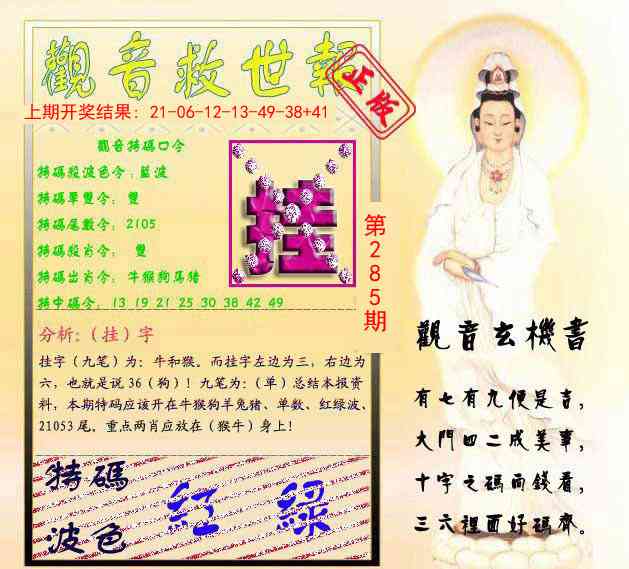 觀音救世報
正版
上期开奖结果: 21-06-12-13-49-38+41
觀音特碼口令
特碼殺波色令:藍波
特碼單雙令: 雙
特碼尾數令: 2105
特碼殺肖令: 雙
特碼出肖令: 牛猴狗馬猪
特中碼令: 13 19 21 25 30 38 42 49
挂
第285期
分析:(挂)字
挂字(九笔)为: 牛和猴。而挂字左边为三, 右边为
六, 也就是说36(狗)! 九笔为:(单)总结本报资
料, 本期特码应该开在牛猴狗羊兔猪、单数、红绿波、
21053尾。重点两肖应放在(猴牛)身上!
特碼
波色
紅 綠
觀音玄機書
有七有九便是吉,
大門四二成美事,
十字之碼而錢看,
三六裡面好碼齊。